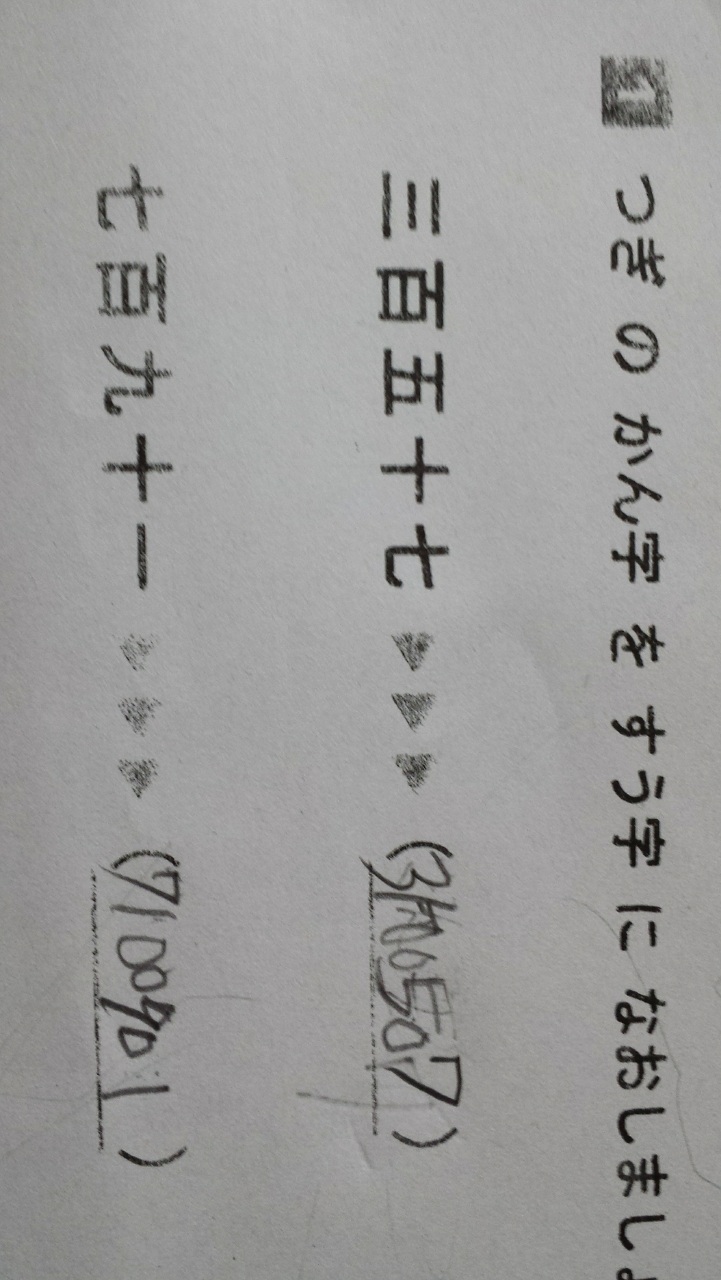 1 つぎ の かん字 を すう字 に なおしまし
三百五十七 ▶▶▶ ( 7)
七百九十一 ▶▶▶ (7100901)